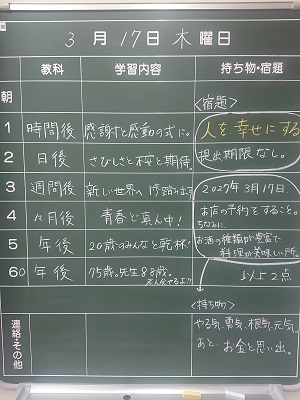 3月17日 木曜日
教科 学習内容 持ち物・宿題
朝 <宿題>
1 時間後 感謝と感動の式に。 人を幸せにする
2 日後 さびしさと桜と期待。 提出期限なし。
3 週間後 新しい世界へ1歩踏み出す 2027年3月17日
4 ヶ月後 青春ど真ん中! お店の予約をすること。
ちなみに
5 年後 20歳のみんなと乾杯! お酒の種類が豊富で
料理が美味しい所。
60 年後 75歳。先生88歳。 以上2点
<持ち物>
連絡・その他 やる気、勇気、根気、元気。
あと、お金と思い出。